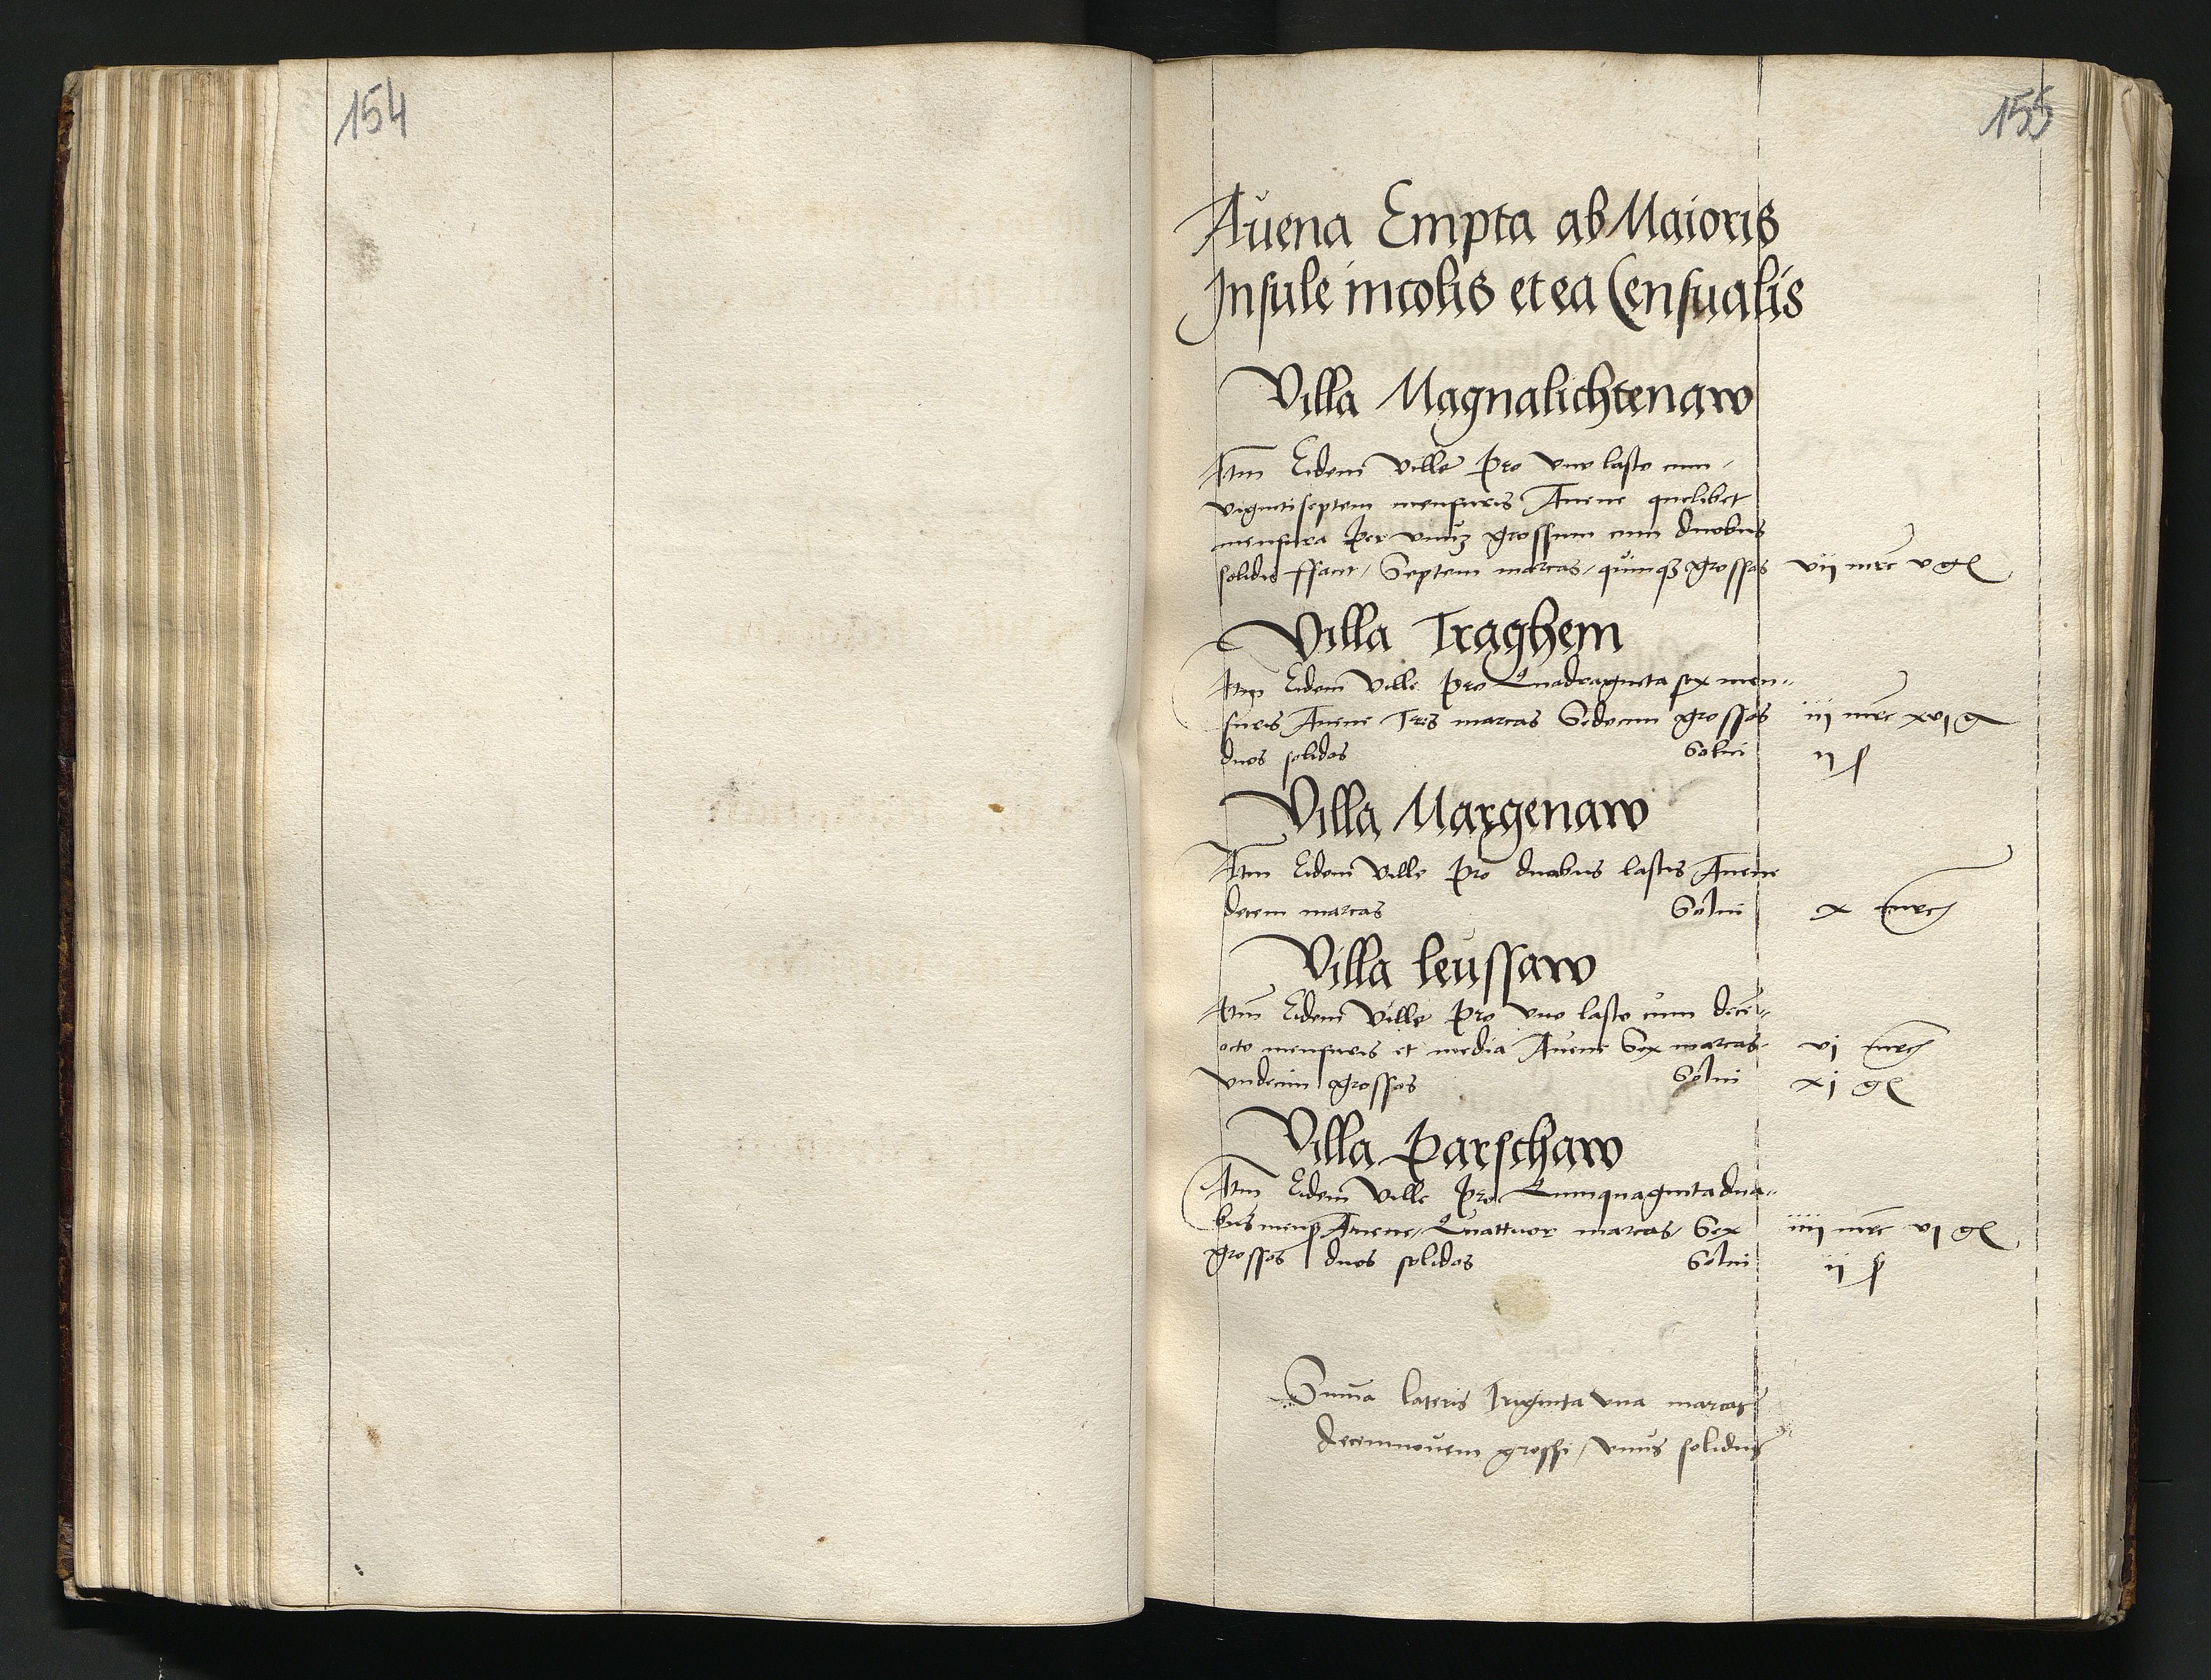 154
155
Auena Empta ab Maioris
Insule incolis et ea Censualis
Villa Magnalichtenaw
Itm Eidem Ville pro vno lasto cum
vigintiseptem mensuris Auene quelibet
mensura per vnuʒ grossum cum duobus
solidis ffacit / Septem marcas / quinqʒ grossos vij mrc v gͬ
Villa Traghem
Itm Eidem Ville pro Quadraginta sex men-
suris Auene Tres marcas Sedecim grossos iij mrc xvj g
duos solidos Solui ij ſ
Villa Margenaw
Itm Eidem Ville pro duabus lastis Auene
decem marcas Solui x mrc
Villa leussaw
Itm Eidem Ville pro vno lasto cum decem-
octo mensuris et media Auene Sex marcas vj mrc
vndecim grossos Solui xj g
Villa Parschaw
Itm Eidem Ville pro Quinquaginta dua-
bus mensͬ Auene / Quattuor marcas / Sex iiij mrc vj g
grossos duos solidos Solui ij ſ
Summa lateris Triginta vna marcas
decemnouem grossi / vnus solidus